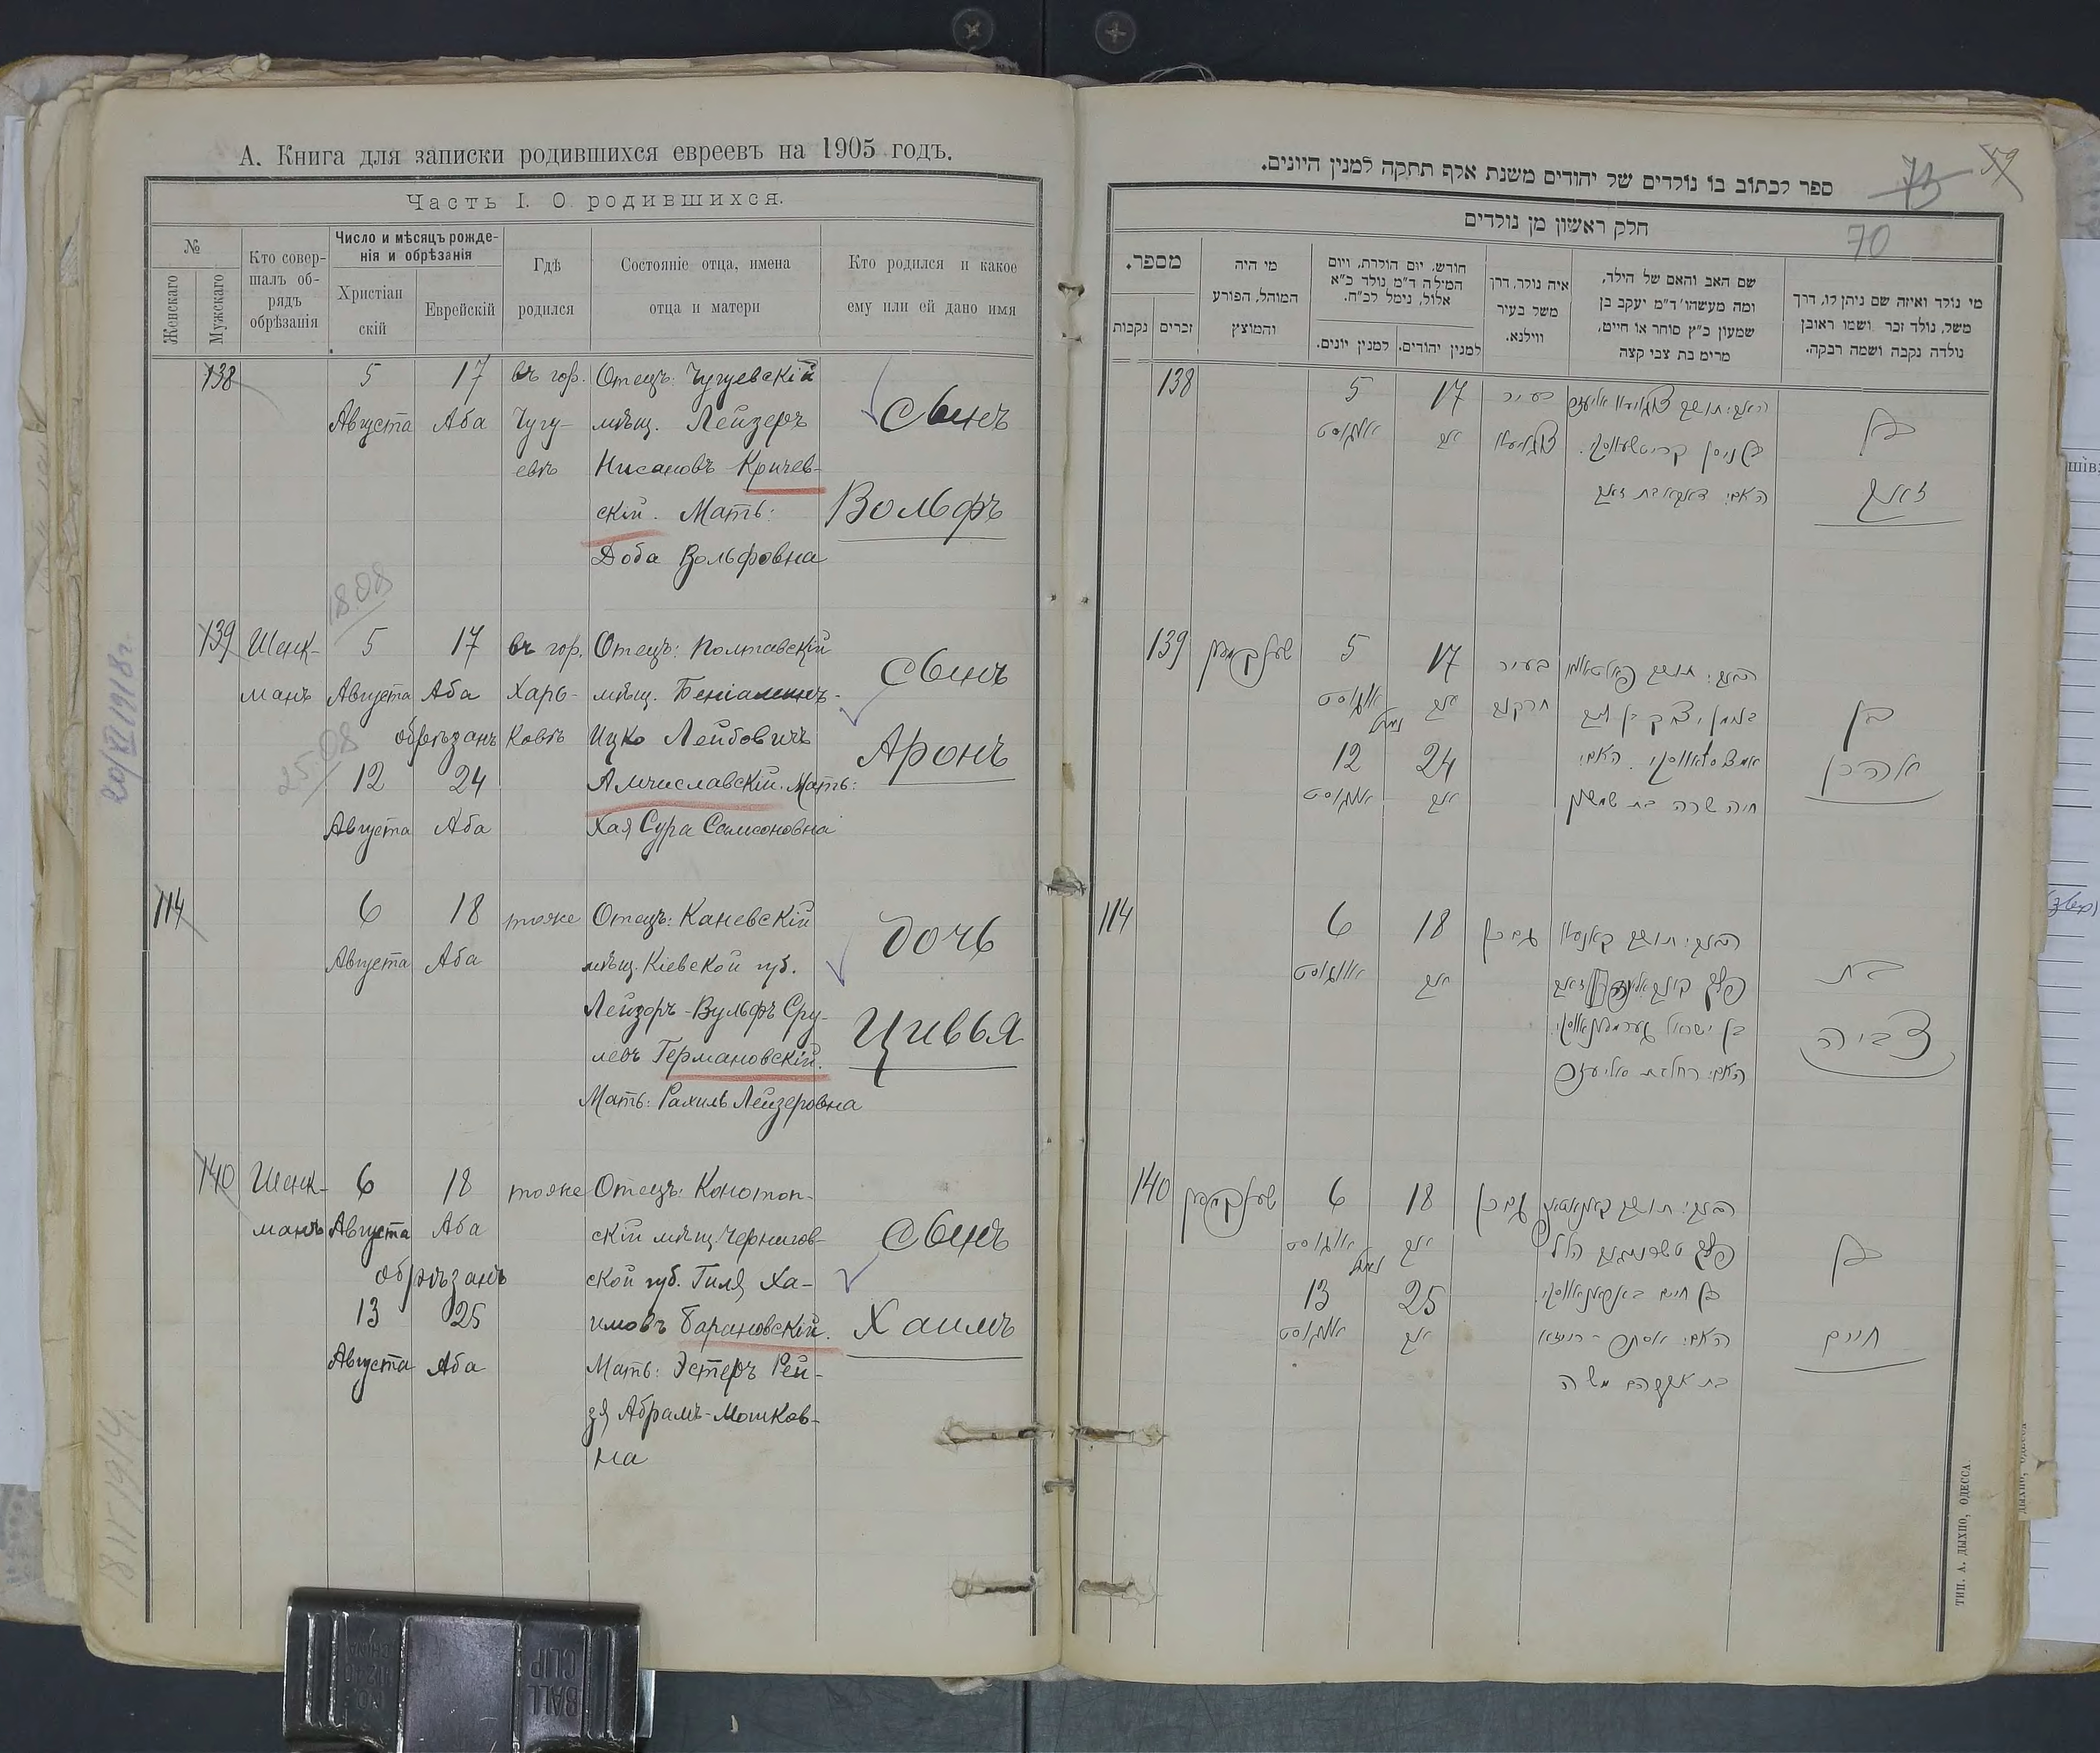 А. Книга для записки родившихся евреевъ на 1905 годъ.
Часть I. О родившихся.
№
Женскаго
Мужскаго
Кто совер-
шалъ об-
рядъ
обрѣзанія
Число и мѣсяцъ рожде-
нія и обрѣзанія
Христіан
скій
Еврейскій
Гдѣ
родился
Состояніе отца, имена
отца и матери
Кто родился и какое
ему или ей дано имя
138
5
Августа
17
Аба
въ гор.
Чугу-
евѣ
Отецъ: Чугуевскій
мѣщ. Лейзеръ
Нисановъ Кричев-
скій. Мать:
Доба Вольфовна
Сынъ
Вольфъ
18.08
139
Шенк-
манъ
5
Августа
17
Аба
обрѣзанъ
12
Августа
24
Аба
въ гор.
Харь-
ковѣ
Отецъ: Полтавскій
мѣщ. Беніаминъ-
Ицко Лейбовичъ
Амчиславскій. Мать:
Хая Сура Самсоновна
Сынъ
Аронъ
25.08
20/XI 1918 г.
114
6
Августа
18
Аба
тоже
Отецъ: Каневскій
мѣщ. Кіевской губ.
Лейзоръ-Вульфъ Сру-
левъ Германовскій.
Мать: Рахиль Лейзеровна
Дочь
Цивья
140
Шенк-
манъ
6
Августа
18
Аба
обрѣзанъ
13
Августа
25
Аба
тоже
Отецъ: Конотоп-
скій мѣщ. Чернигов-
ской губ. Гиля Ха-
имовъ Барановскій.
Мать: Эстеръ Рей-
зя Абрамъ-Мошков-
на
Сынъ
Хаимъ
ספר לכתוב בו נולדים של יהודים משנת אלף תתקה למנין היונים.
73
59
70
חלק ראשון מן נולדים
מספר.
נקבות
זכרים
מי היה
המוהל, הפורע
והמוצץ
חודש, יום הולדת, ויום
המילה ד״מ נולד כ״א
אלול, נימל לכ״ח.
למנין יונים.
למנין יהודים.
איה נולד, דרך
משל בעיר
ווילנא.
שם האב והאם של הילד,
ומה מעשהו ד״מ יעקב בן
שמעון כ״ץ סוחר או חייט,
מרים בת צבי קצה
מי נולד ואיזה שם ניתן לו, דרך
משל, נולד זכר ושמו ראובן
נולדה נקבה ושמה רבקה.
138
5
אווגוסט
17
אב
בעיר
בן
זאב
139
שענקמאן
5
אווגוסט
17
אב
נמול
12
אווגוסט
24
אב
בעיר
חרקוב
חיה שרה בת שמשון
בן
אהרן
114
6
אווגוסט
18
אב
גם כן
בת
צביה
140
שענקמאן
6
אווגוסט
18
אב
נמול
13
אווגוסט
25
אב
גם כן
בת אברהם משה
בן
חיים
ТИП. А. ДЫХНО, ОДЕССА.
BALL
CLIP